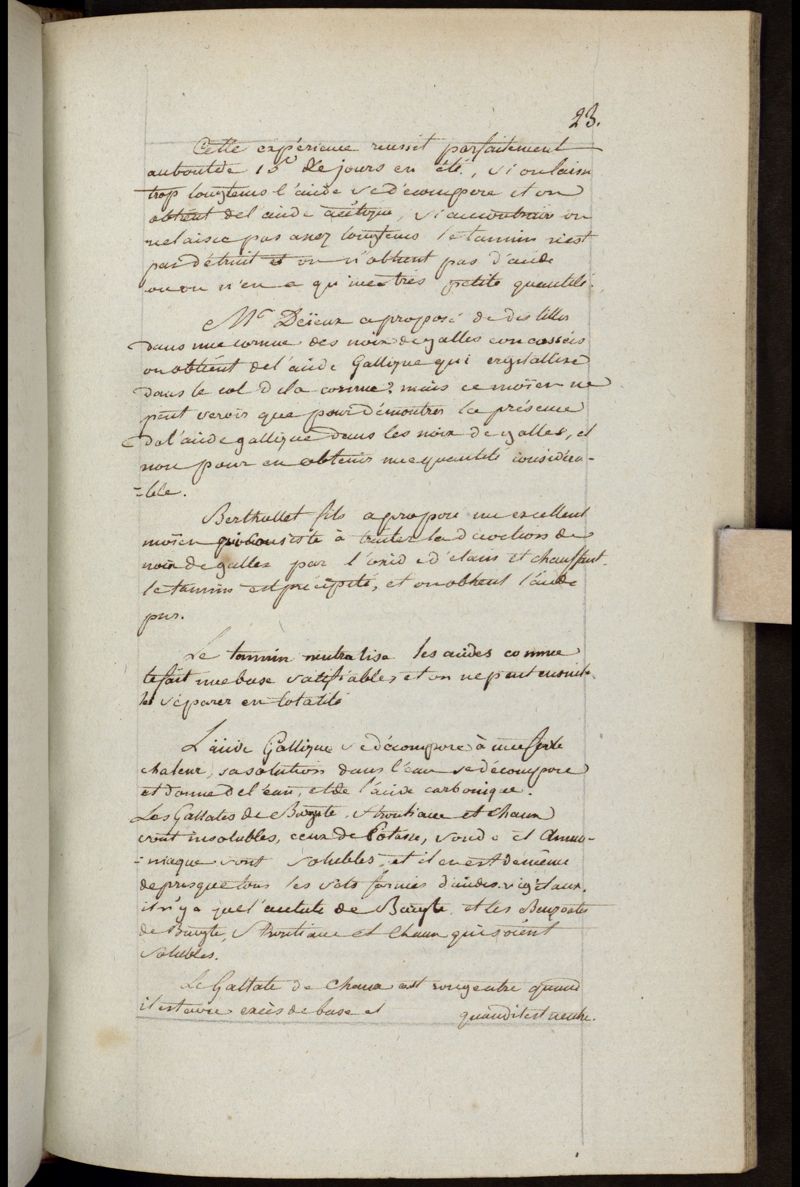 23.
Cette expérience reussit parfaitement
au bout de 15 de jours en été, si on laisse
trop longtems l'acide se décompose et on
obtient del'acide acétique, si au contraire on
ne laisse pas assez longtems le tannin n'est
pas détruit et on n'obtient pas d'acide
ou on n'en a qu'une très petite quantité.
Mr Deïeux a proposé de distiller
dans une cornue des noix de galles concassées
on obtient de l'acide Gallique qui crystallise
dans le col de la cornue; mais ce moïen ne
peut servir que pour démontrer la présence
de l'acide gallique dans les noix de galles, et
non pour en obtenir une quantité considéra-
-ble.
Berthollet fils a proposé un excellent
moïen qui consiste à traiter la décoction de
noix de galles par l'oxide d'étain et chauffant.
le tannin est précipité, et on obtient l'acide
pur.
Le tannin neutralise les acides comme
le fait une base salifiables et on ne peut ensuite
les séparer en totalité
L'acide Gallique se décompose à une forte
chaleur, sa solution dans l'eau se décompose
et donne de l'eau, et de l'acide carbonique.
Les Gallates de Baryte, Strontiane et Chaux
sont insolubles, ceux de Potasse, soude et Ammo-
-niaque sont solubles, et il en est de même
de presque tous les sels formés d'acides végétaux.
il n'y a que l'acétate de Baryte, et les Benzoates
de Baryte, Strontiane et Chaux qui soient
solubles.
Le Gallate de Chaux est rougeatre quand
il est avec excès de base et quand il est neutre.